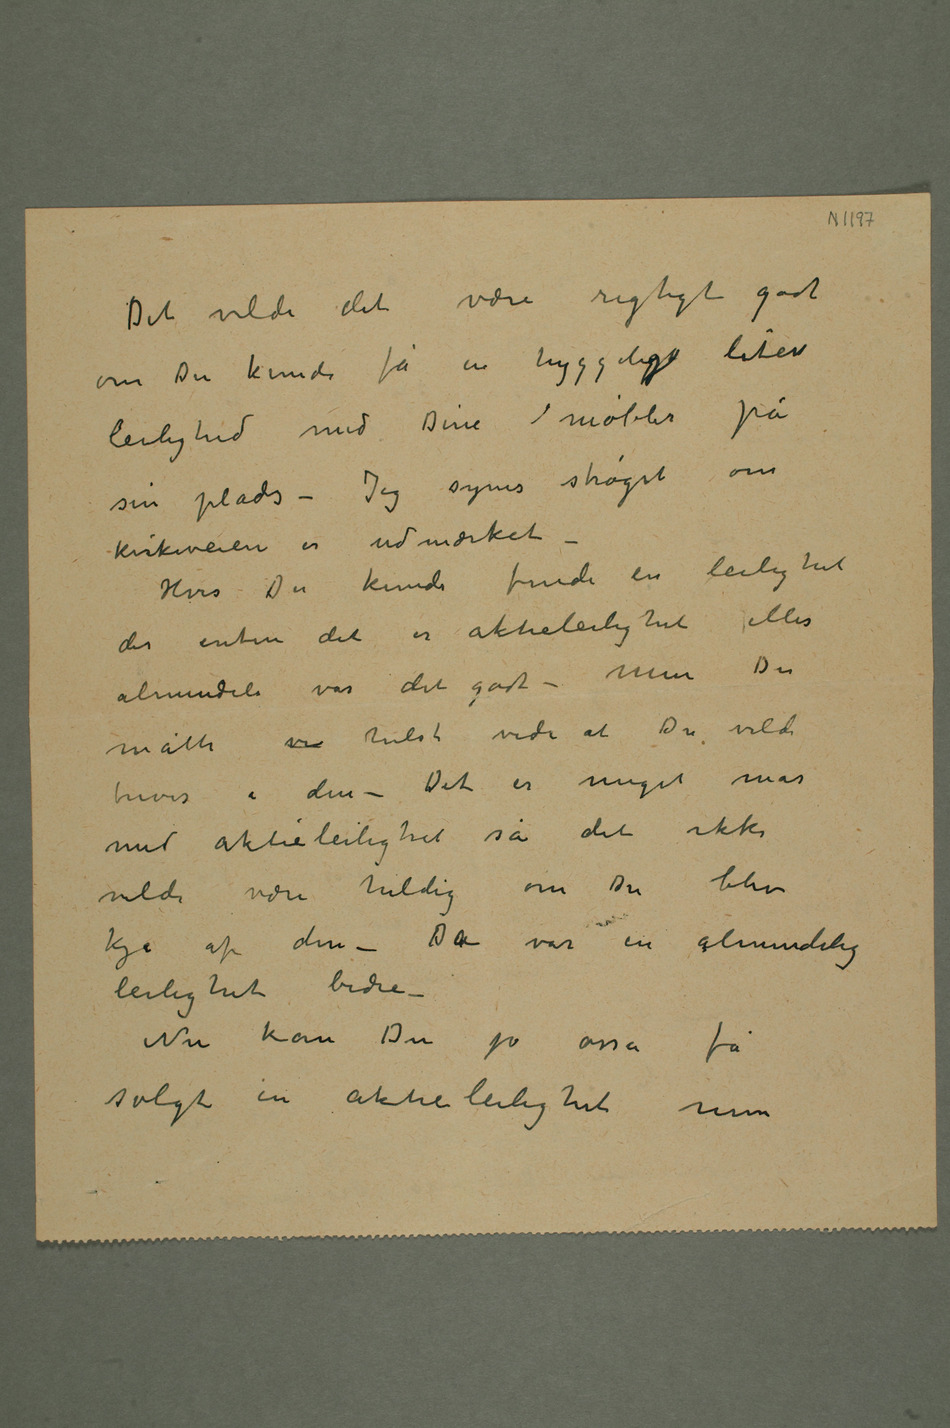 N 1197
Det vilde det være rigtigt godt
om Du kunde få en hyggelig liten
leilighed med Dine møbler på
sin plads – Jeg synes strøget om
kirkeveien er udmærket –
Hvis Du kunde finde en leilighet
der enten det er aktieleilighet eller
almindeli var det godt – Men Du
måtte vi helst vide at Du vilde
trives i den – Det er meget mas
med aktieleilighet så det ikke
vilde være heldig om Du blev
kje af den – Da var en almindelig
leilighet bedre –
Nu kan Du jo osså få
solgt en aktieleilighet men